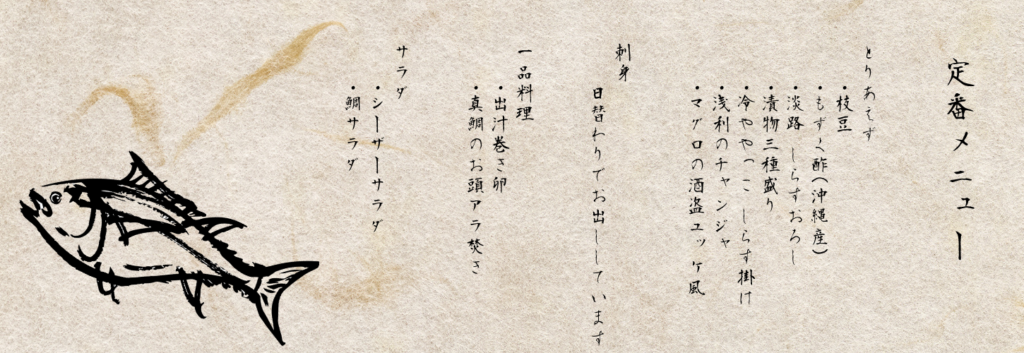 定番メニュー
とりあえず
・枝豆
・もずく酢(沖縄産)
・淡路 しらすおろし
・漬物三種盛り
・冷ややっこ しらす掛け
・浅利のチャンジャ
・マグロの酒盗ユッケ風
刺身
日替わりでお出ししています
一品料理
・出汁巻き卵
・真鯛のお頭アラ焚き
サラダ
・シーザーサラダ
・鯛サラダ